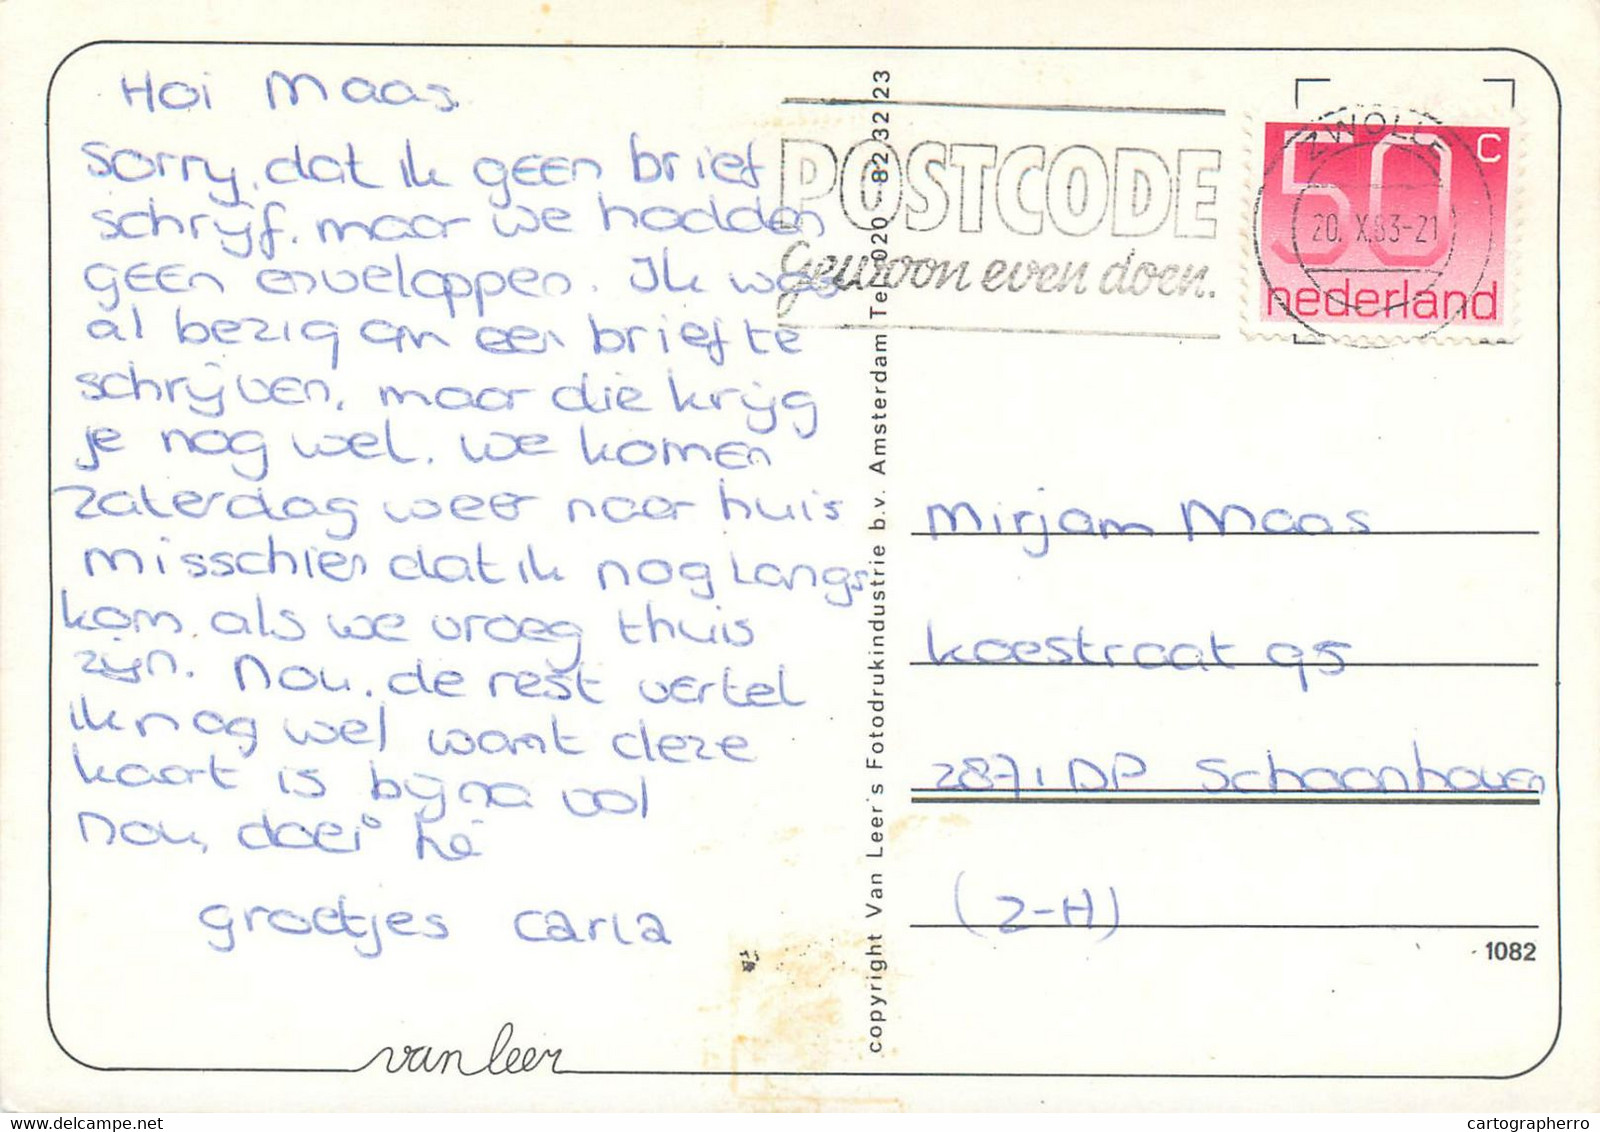 Hoi Maas
Sorry, dat ik geen brief
schrijf, maar we hadden
geen enveloppen. Ik was
al bezig om een brief te
schrijven, maar die krijg
je nog wel. We komen
Zaterdag weer naar huis
misschien dat ik nog langs
kom als we vroeg thuis
zijn. Nou, de rest vertel
ik nog wel want deze
kaart is bijna vol
Nou, doei hè
groetjes Carla
van leer
copyright Van Leer's Fotodrukindustrie b.v. Amsterdam Tel. 020 - 82 32 23
POSTCODE
Gewoon even doen.
ZWOLLE
20.X.83-21
50 C
nederland
Mirjam Maas
Koestraat 95
2871 DP Schoonhoven
(2-H)
1082
cartographerro